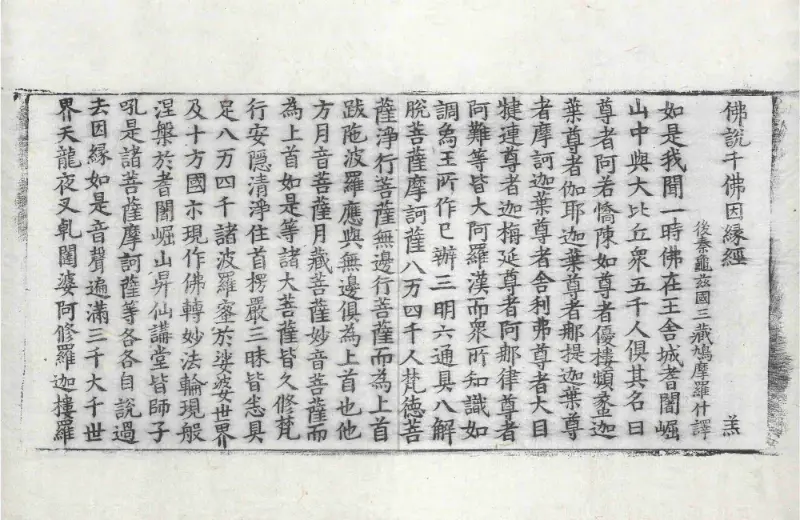 佛說千佛因緣經 羔
後秦龜茲國三藏鳩摩羅什譯
如是我聞一時佛在王舍城耆闍崛
山中與大比丘衆五千人俱其名曰
尊者阿若憍陳如尊者優樓頻蠡迦
葉尊者伽耶迦葉尊者那提迦葉尊
者摩訶迦葉尊者舍利弗尊者大目
揵連尊者迦栴延尊者阿那律尊者
阿難等皆大阿羅漢而衆所知識如
調爲王所作已辦三明六通具八解
脫菩薩摩訶薩八万四千人梵德菩
薩淨行菩薩無邊行菩薩而爲上首
跋陁波羅應與無邊俱爲上首也他
方月音菩薩月藏菩薩妙音菩薩而
爲上首如是等諸大菩薩皆久修梵
行安隱清淨住首楞嚴三昧皆悉具
足八万四千諸波羅蜜於娑婆世界
及十方國示現作佛轉妙法輪現般
涅槃於耆闍崛山昇仙講堂皆師子
吼是諸菩薩摩訶薩等各各自說過
去因緣如是音聲遍滿三千大千世
界天龍夜叉乹闥婆阿修羅迦樓羅